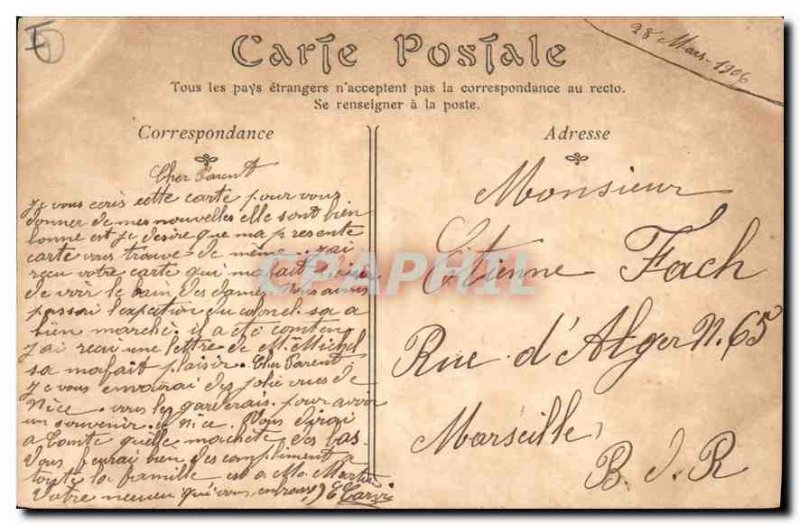 28 Mars 1906
Carte Postale
Tous les pays étrangers n'acceptent pas la correspondance au recto.
Se renseigner à la poste.
Correspondance
Cher Parent
Je vous ecris cette carte pour vous
donner de mes nouvelles elle sont bien
bonne est je desire que ma presente
carte vous trouve de même. j'ai
reçu votre carte qui ma fait
de voir le bain des dames
passai du colonel. sa a
bien marché. il a été
j'ai reçu une lettre de Michel
sa ma fait plaisir. Cher Parent
Je vous envairai des jolie vues de
Nice. vous les garderais. pour avoir
un souvenir. Nice. Vous dirai
a quelle des bas.
Vous ferai bien des compliment a
toute la famille est a
Votre neveu qui vous
CPAPHIL
Adresse
Monsieur
Etienne Fach
Rue d'Alger N. 65
Marseille,
B. d. R